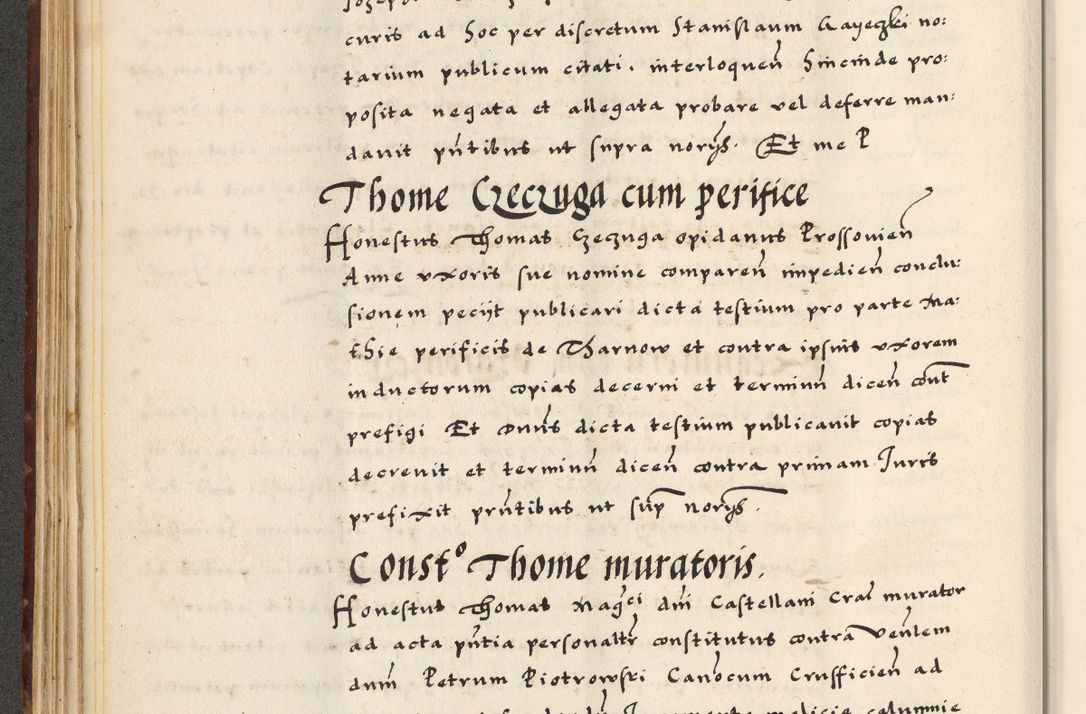 curis ad hoc per discretum Stanislaum Gayeczki no:
tarium publicum citati. interloquen̄ hincinde pro:
posita negata et allegata probare vel deferre man:
davit pn̄tibus ut supra noryś. Et me P
Thome Czeczuga cum perifice
Honestus Thomas Czeczuga opidanus Prossovien̄
Anne uxoris sue nomine comparen̄ impedien̄ conclu:
sionem peciit publicari dicta testium pro parte Ma:
thie perificis de Tharnow et contra ipsius uxorem
inductorum copias decerni et terminū dicen̄ cont̄
prefigi Et Dnūs dicta testium publicavit copias
decrevit et terminū dicen̄ contra primam Juris
prefixit prn̄tibus ut sup̄ noryś.
Constᵒ Thome muratoris.
Honestus Thomas Mag̃ci dn̄i Castellani Craꝭ murator
ad acta pn̄tia personaltr̄ constitutus contra Ven̄lem
dnm̄ Petrum Piotrowski Can̄ocum Crusficien̄ ad
Juramento malicie calumnie